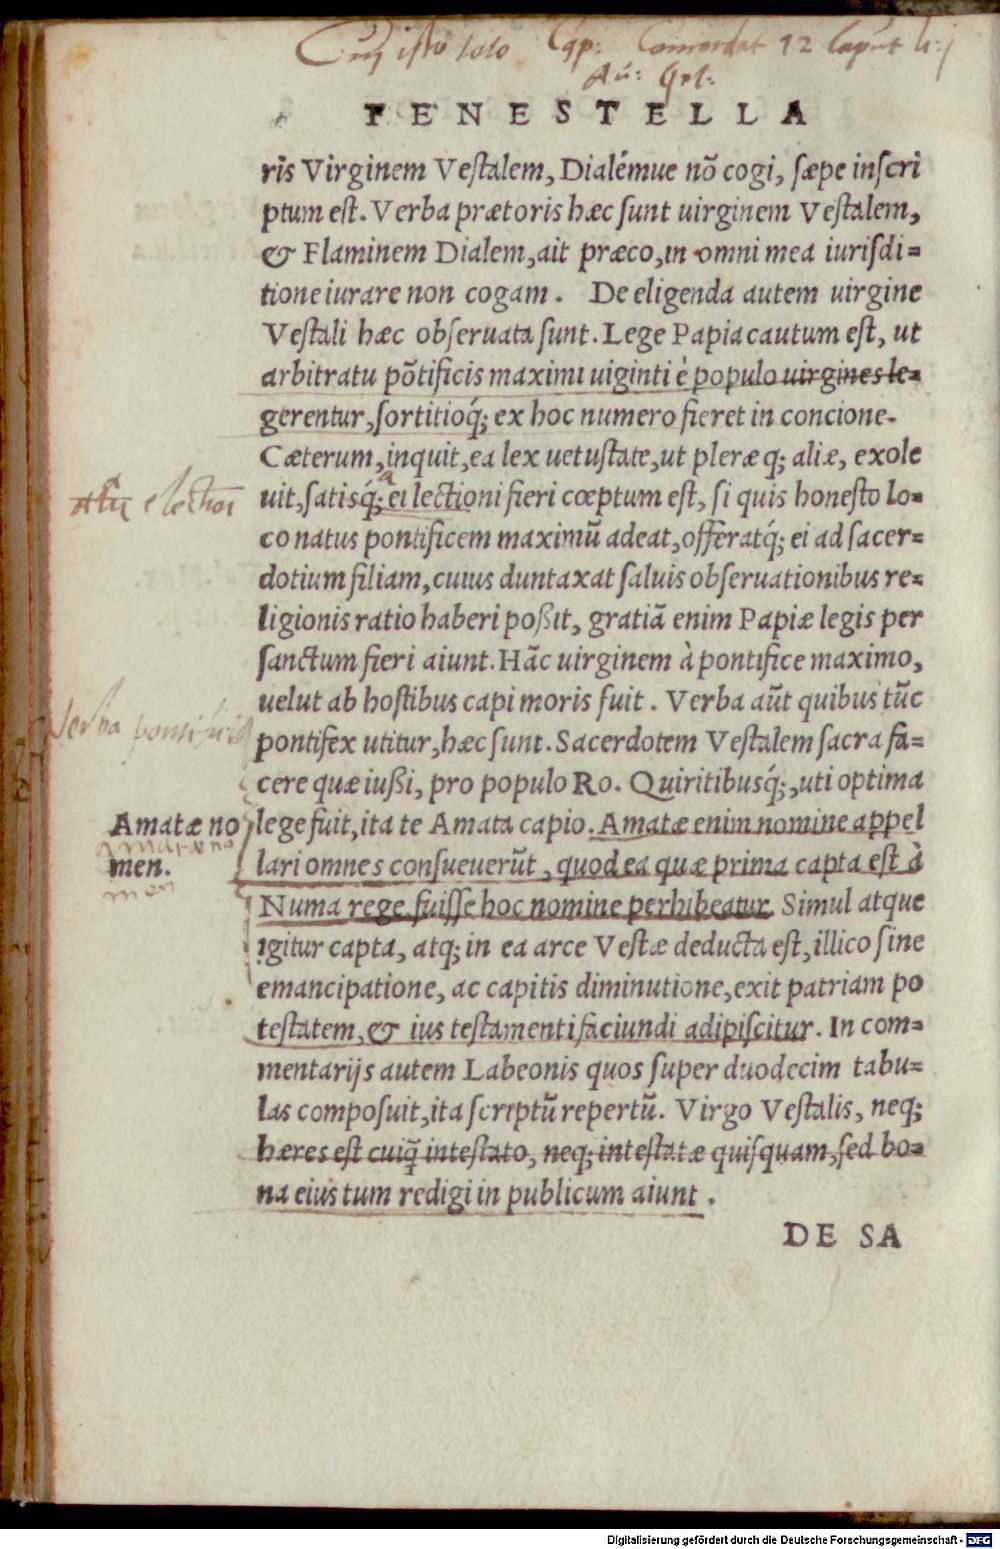 Cum isto toto Cap: Concordat 12 Caput li: j
Au: Gel:
FENESTELLA
ris Virginem Vestalem, Dialémue nõ cogi, sæpe inscri
ptum est. Verba prætoris hæc sunt uirginem Vestalem,
& Flaminem Dialem, ait præco, in omni mea iurisdi=
tione iurare non cogam. De eligenda autem uirgine
Vestali hæc obseruata sunt. Lege Papia cautum est, ut
arbitratu põtificis maximi uiginti è populo uirgines le=
gerentur, sortitioq́; ex hoc numero fieret in concione.
Cæterum, inquit, ea lex uetustate, ut pleræq; aliæ, exole
uit, satisq́; ei lectioni fieri cœptum est, si quis honesto lo=
co natus pontificem maximũ adeat, offeratq́; ei ad sacer=
dotium filiam, cuius duntaxat saluis obseruationibus re=
ligionis ratio haberi poßit, gratiã enim Papiæ legis per
sanctum fieri aiunt. Hãc uirginem à pontifice maximo,
uelut ab hostibus capi moris fuit. Verba aũt quibus tũc
pontifex utitur, hæc sunt. Sacerdotem Vestalem sacra fa=
cere quæ iußi, pro populo Ro. Quiritibusq́;, uti optima
lege fuit, ita te Amata capio. Amatæ enim nomine appel
lari omnes consueuerũt, quod ea quæ prima capta est à
Numa rege fuisse hoc nomine perhibeatur. Simul atque
igitur capta, atq; in ea arce Vestæ deducta est, illico sine
emancipatione, ac capitis diminutione, exit patriam po
testatem, & ius testamenti faciundi adipiscitur. In com=
mentarijs autem Labeonis quos super duodecim tabu=
las composuit, ita scriptũ repertũ. Virgo Vestalis, neq;
hæres est cuiq̃ intestato, neq; intestatæ quisquam, sed bo=
na eius tum redigi in publicum aiunt.
DE SA
a
electioni
Verba pontificis
Amatæ no
men.
Amatæ no
men
Digitalisierung gefördert durch die Deutsche Forschungsgemeinschaft - DFG